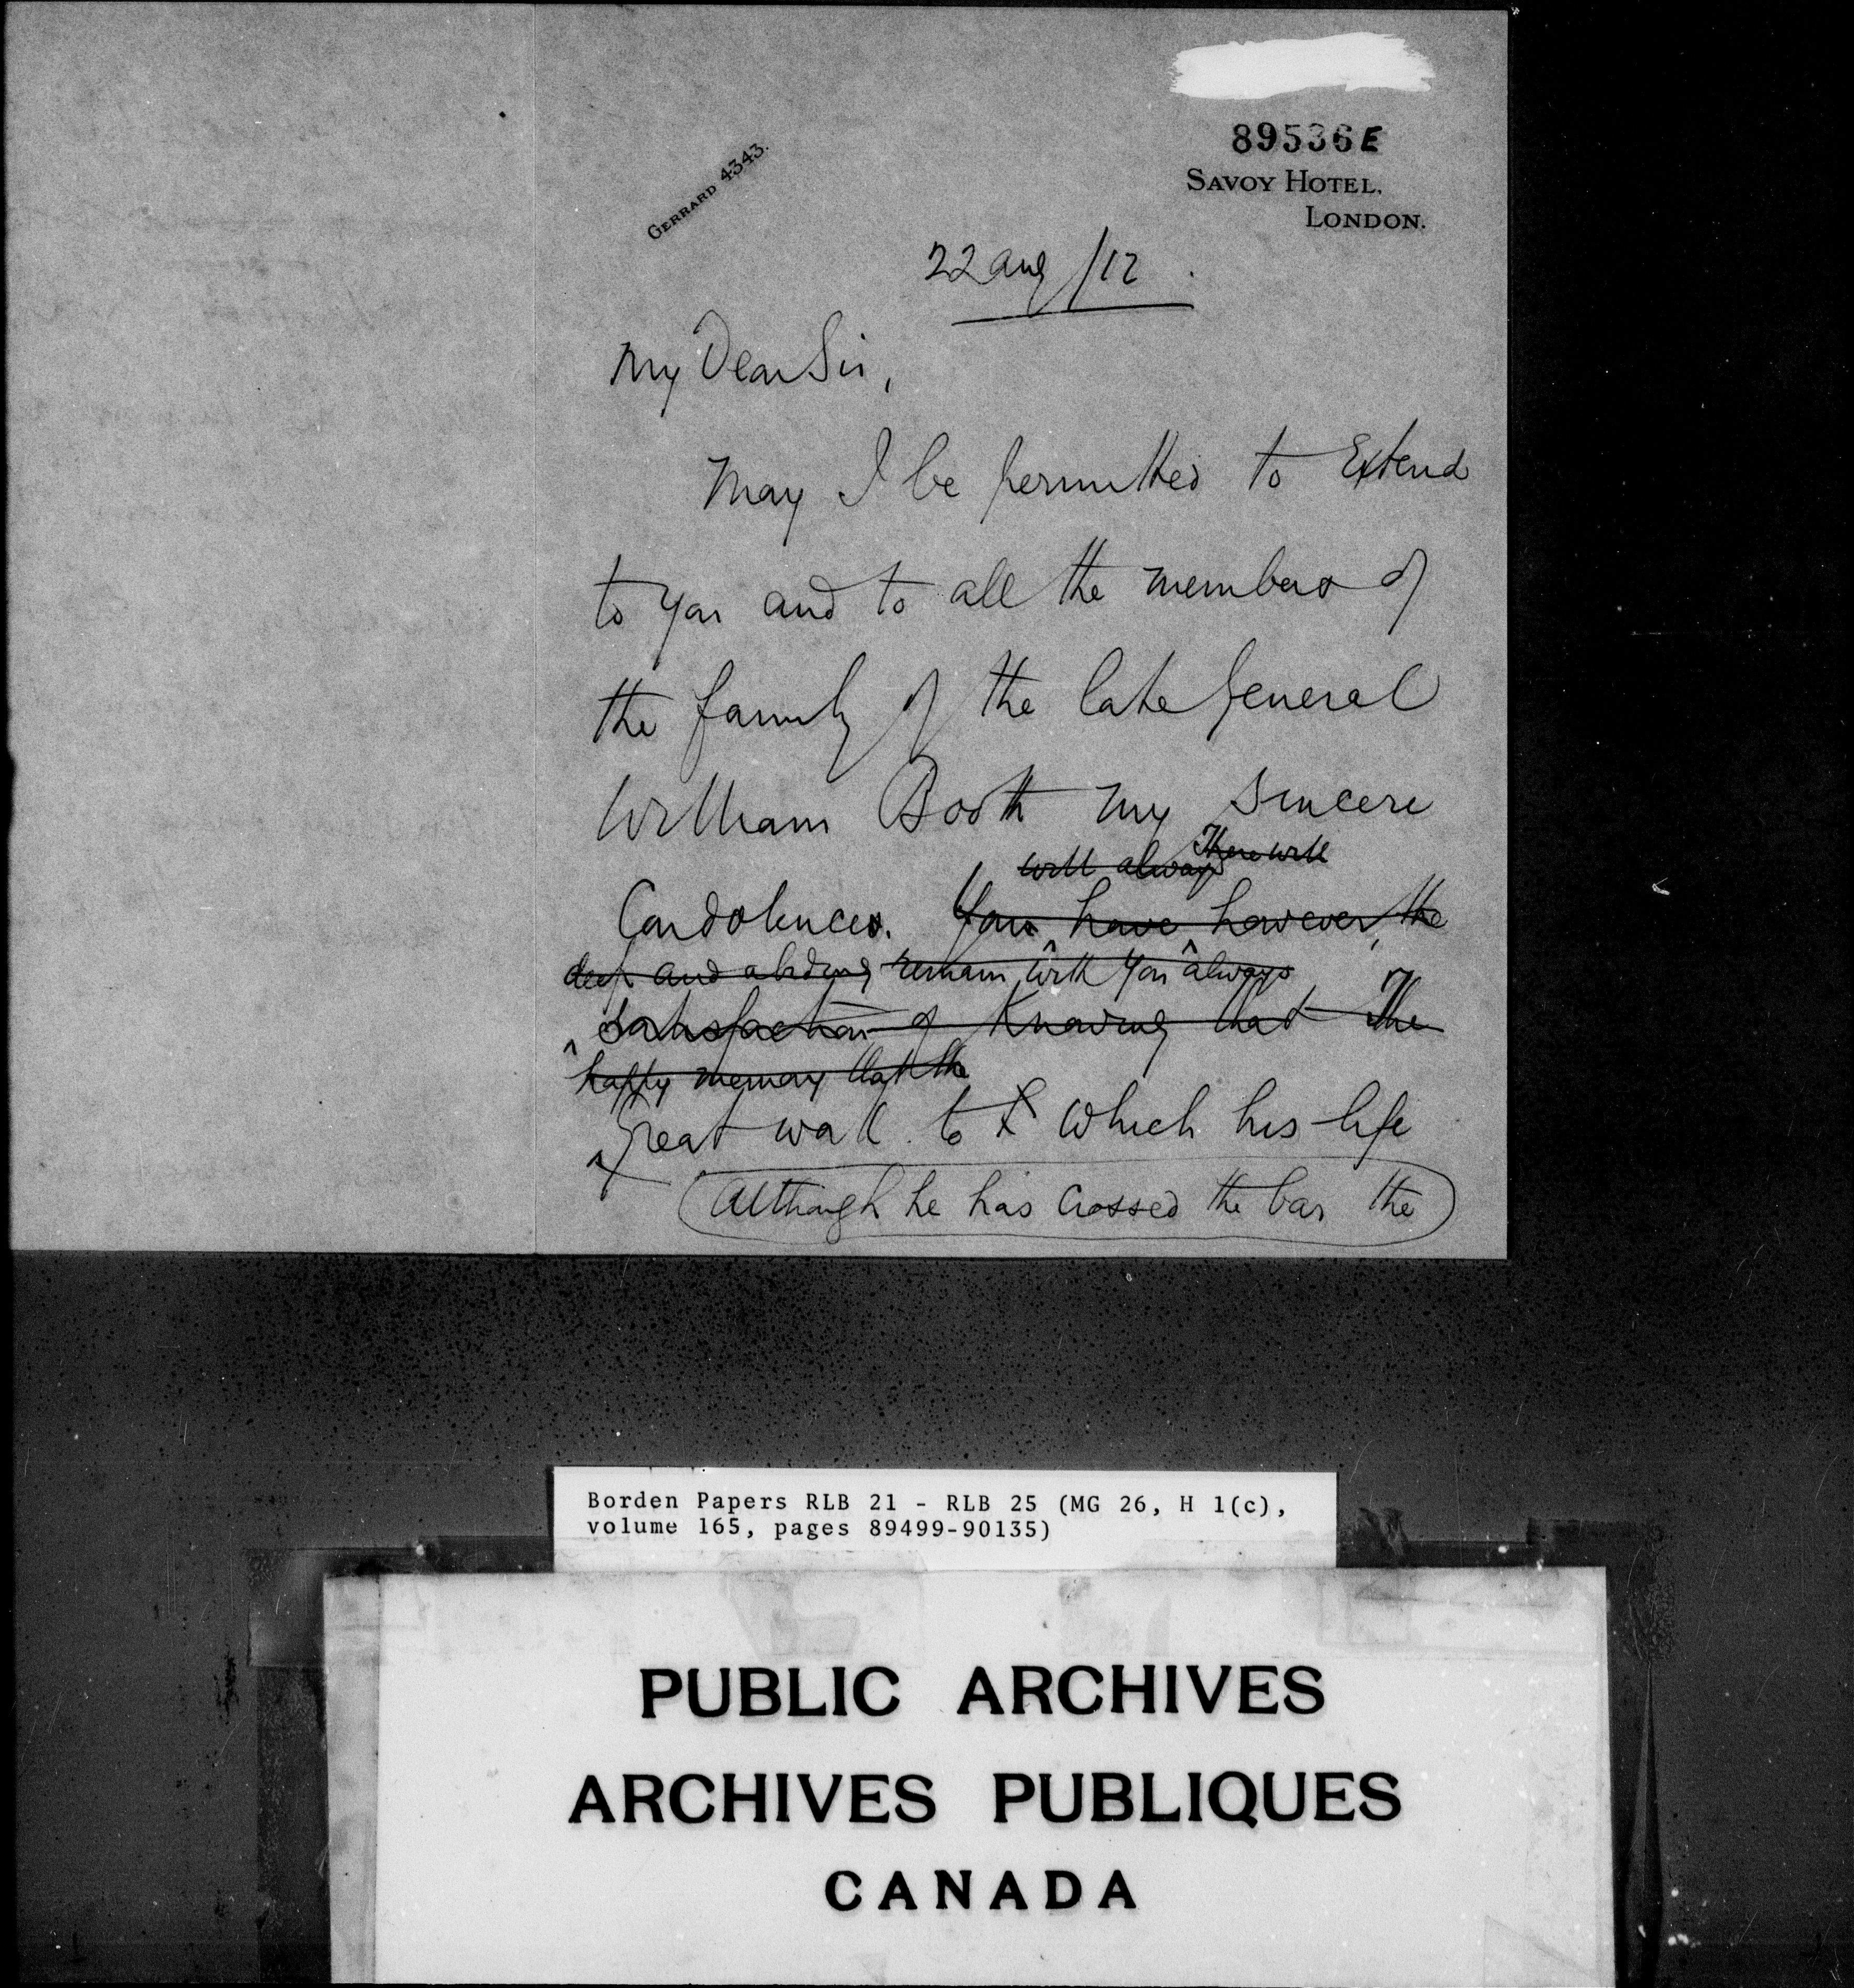 89536E
SAVOY HOTEL,
LONDON.
GERRARD 4343.
22 Aug /12.
My Dear Sir,
May I be permitted to Extend
to you and to all the members of
the family of the late General
William Booth my sincere
will always There will
Condolences. You have however, the
deep and abiding remain with you always
satisfaction of Knowing that The
happy memory that the
great work to which his life
Although he has Crossed the bar the
Borden Papers RLB 21 - RLB 25 (MG 26, H 1(c),
volume 165, pages 89499-90135)
PUBLIC ARCHIVES
ARCHIVES PUBLIQUES
CANADA